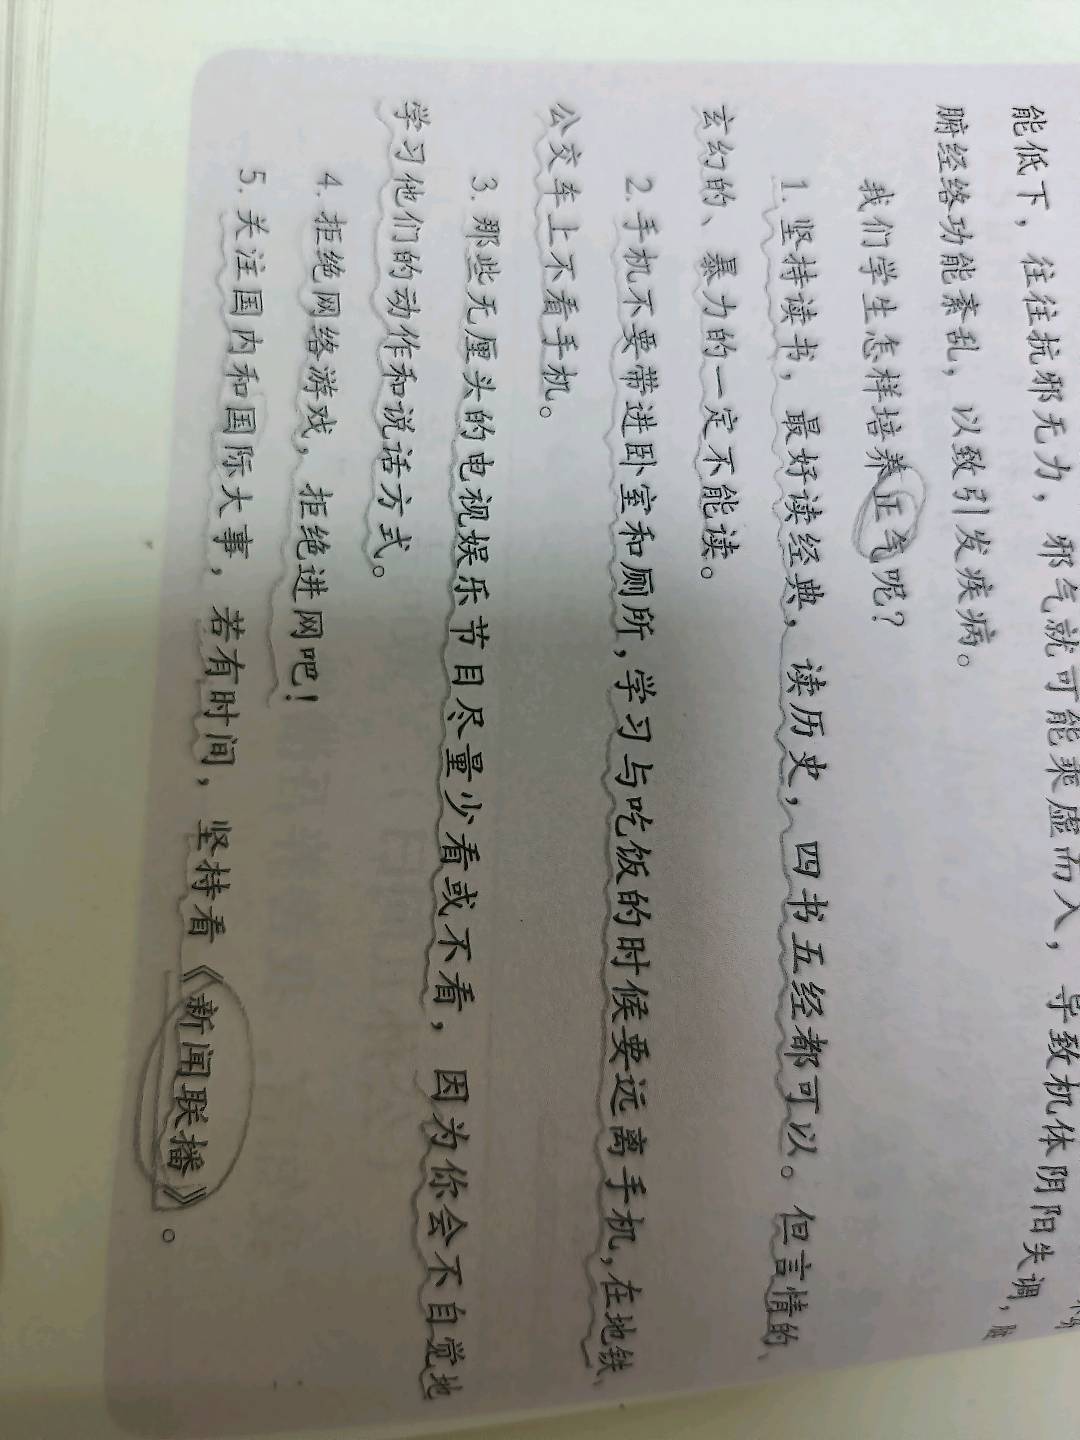 能低下，往往抗邪无力，邪气就可能乘虚而入，导致机体阴阳失调，脏
腑经络功能紊乱，以致引发疾病。
我们学生怎样培养正气呢？
1.坚持读书，最好读经典，读历史，四书五经都可以。但言情的、
玄幻的、暴力的一定不能读。
2.手机不要带进卧室和厕所，学习与吃饭的时候要远离手机，在地铁、
公交车上不看手机。
3.那些无厘头的电视娱乐节目尽量少看或不看，因为你会不自觉地
学习他们的动作和说话方式。
4.拒绝网络游戏，拒绝进网吧！
5.关注国内和国际大事，若有时间，坚持看《新闻联播》。